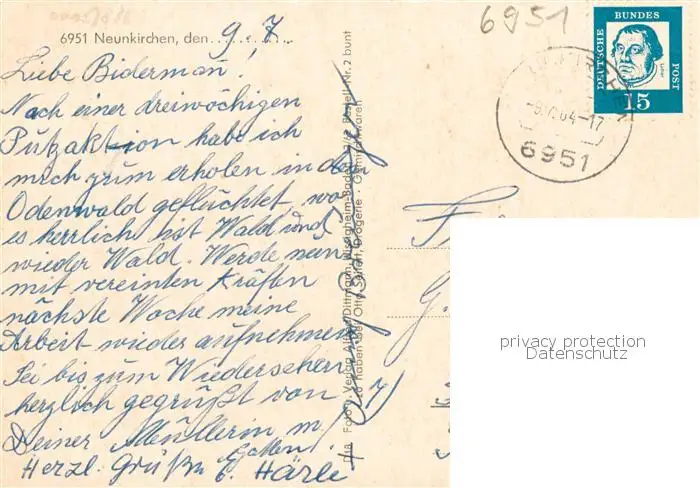 6951 Neunkirchen, den 9. 7.
Liebe Biderman!
Nach einer dreiwöchigen
Putzaktion habe ich
mich zum erholen in den
Odenwald geflüchtet, wo
es herrlich ist Wald und
wieder Wald. Werde nun
mit vereinten Kräften
nächste Woche meine
Arbeit wieder aufnehmen
Sei bis zum Wiedersehen
herzlich gegrüßt von
Deiner Müllerin m.
Herzl. Grüße Härle
Foto u. Verlag Dittmann,
Zu haben bei Otto Seifert, Drogerie
Bestell-Nr. 2 bunt
6951
DEUTSCHE BUNDES POST
Luther
15
-9.7.64-17
6951
privacy protection
Datenschutz